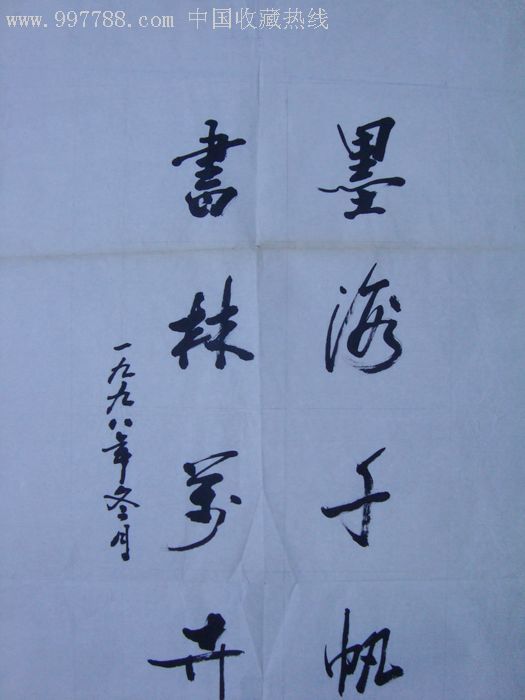 www.997788.com 中国收藏热线
墨海千帆
書林萬卉
一九九八年冬月